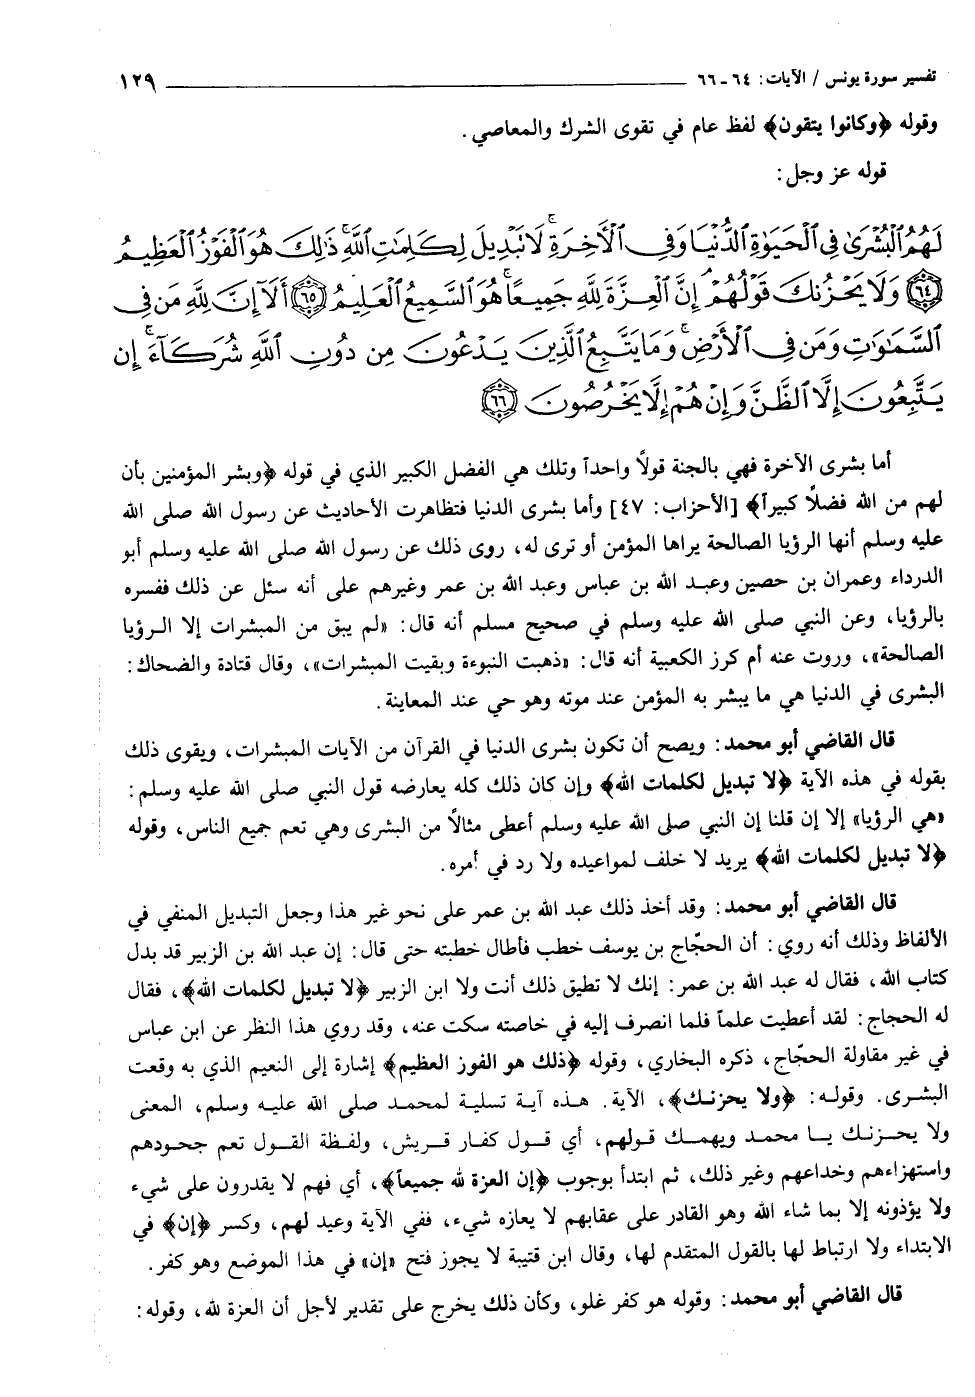 تفسير سورة يونس / الآيات: ٦٤ - ٦٦ ١٢٩
وقوله ﴿وكانوا يتقون﴾ لفظ عام في تقوى الشرك والمعاصي.
قوله عز وجل:
لَهُمُ ٱلْبُشْرَىٰ فِى ٱلْحَيَوٰةِ ٱلدُّنْيَا وَفِى ٱلْأَخِرَةِ ۚ لَا تَبْدِيلَ لِكَلِمَٰتِ ٱللَّهِ ۚ ذَٰلِكَ هُوَ ٱلْفَوْزُ ٱلْعَظِيمُ
﴿٦٤﴾ وَلَا يَحْزُنكَ قَوْلُهُمْ ۘ إِنَّ ٱلْعِزَّةَ لِلَّهِ جَمِيعًا ۚ هُوَ ٱلسَّمِيعُ ٱلْعَلِيمُ ﴿٦٥﴾ أَلَآ إِنَّ لِلَّهِ مَن فِى
ٱلسَّمَٰوَٰتِ وَمَن فِى ٱلْأَرْضِ ۗ وَمَا يَتَّبِعُ ٱلَّذِينَ يَدْعُونَ مِن دُونِ ٱللَّهِ شُرَكَآءَ ۚ إِن
يَتَّبِعُونَ إِلَّا ٱلظَّنَّ وَإِنْ هُمْ إِلَّا يَخْرُصُونَ ﴿٦٦﴾
أما بشرى الآخرة فهي بالجنة قولاً واحداً وتلك هي الفضل الكبير الذي في قوله ﴿وبشر المؤمنين بأن
لهم من الله فضلاً كبيراً﴾ [الأحزاب: ٤٧] وأما بشرى الدنيا فتظاهرت الأحاديث عن رسول الله صلى الله
عليه وسلم أنها الرؤيا الصالحة يراها المؤمن أو ترى له، روى ذلك عن رسول الله صلى الله عليه وسلم أبو
الدرداء وعمران بن حصين وعبد الله بن عباس وعبد الله بن عمر وغيرهم على أنه سئل عن ذلك ففسره
بالرؤيا، وعن النبي صلى الله عليه وسلم في صحيح مسلم أنه قال: «لم يبق من المبشرات إلا الرؤيا
الصالحة»، وروت عنه أم كرز الكعبية أنه قال: «ذهبت النبوءة وبقيت المبشرات»، وقال قتادة والضحاك:
البشرى في الدنيا هي ما يبشر به المؤمن عند موته وهو حي عند المعاينة.
قال القاضي أبو محمد: ويصح أن تكون بشرى الدنيا في القرآن من الآيات المبشرات، ويقوى ذلك
بقوله في هذه الآية ﴿لا تبديل لكلمات الله﴾ وإن كان ذلك كله يعارضه قول النبي صلى الله عليه وسلم:
«هي الرؤيا» إلا إن قلنا إن النبي صلى الله عليه وسلم أعطى مثالاً من البشرى وهي تعم جميع الناس، وقوله
﴿لا تبديل لكلمات الله﴾ يريد لا خلف لمواعيده ولا رد في أمره.
قال القاضي أبو محمد: وقد أخذ ذلك عبد الله بن عمر على نحو غير هذا وجعل التبديل المنفي في
الألفاظ وذلك أنه روي: أن الحجّاج بن يوسف خطب فأطال خطبته حتى قال: إن عبد الله بن الزبير قد بدل
كتاب الله، فقال له عبد الله بن عمر: إنك لا تطيق ذلك أنت ولا ابن الزبير ﴿لا تبديل لكلمات الله﴾، فقال
له الحجاج: لقد أعطيت علماً فلما انصرف إليه في خاصته سكت عنه، وقد روي هذا النظر عن ابن عباس
في غير مقاولة الحجّاج، ذكره البخاري، وقوله ﴿ذلك هو الفوز العظيم﴾ إشارة إلى النعيم الذي به وقعت
البشرى. وقوله: ﴿ولا يحزنك﴾، الآية. هذه آية تسلية لمحمد صلى الله عليه وسلم، المعنى
ولا يحزنك يا محمد ويهمك قولهم، أي قول كفار قريش، ولفظة القول تعم جحودهم
واستهزاءهم وخداعهم وغير ذلك، ثم ابتدأ بوجوب ﴿إن العزة لله جميعاً﴾، أي فهم لا يقدرون على شيء
ولا يؤذونه إلا بما شاء الله وهو القادر على عقابهم لا يعازه شيء، ففي الآية وعيد لهم، وكسر ﴿إن﴾ في
الابتداء ولا ارتباط لها بالقول المتقدم لها، وقال ابن قتيبة لا يجوز فتح «إن» في هذا الموضع وهو كفر.
قال القاضي أبو محمد: وقوله هو كفر غلو، وكأن ذلك يخرج على تقدير لأجل أن العزة لله، وقوله: